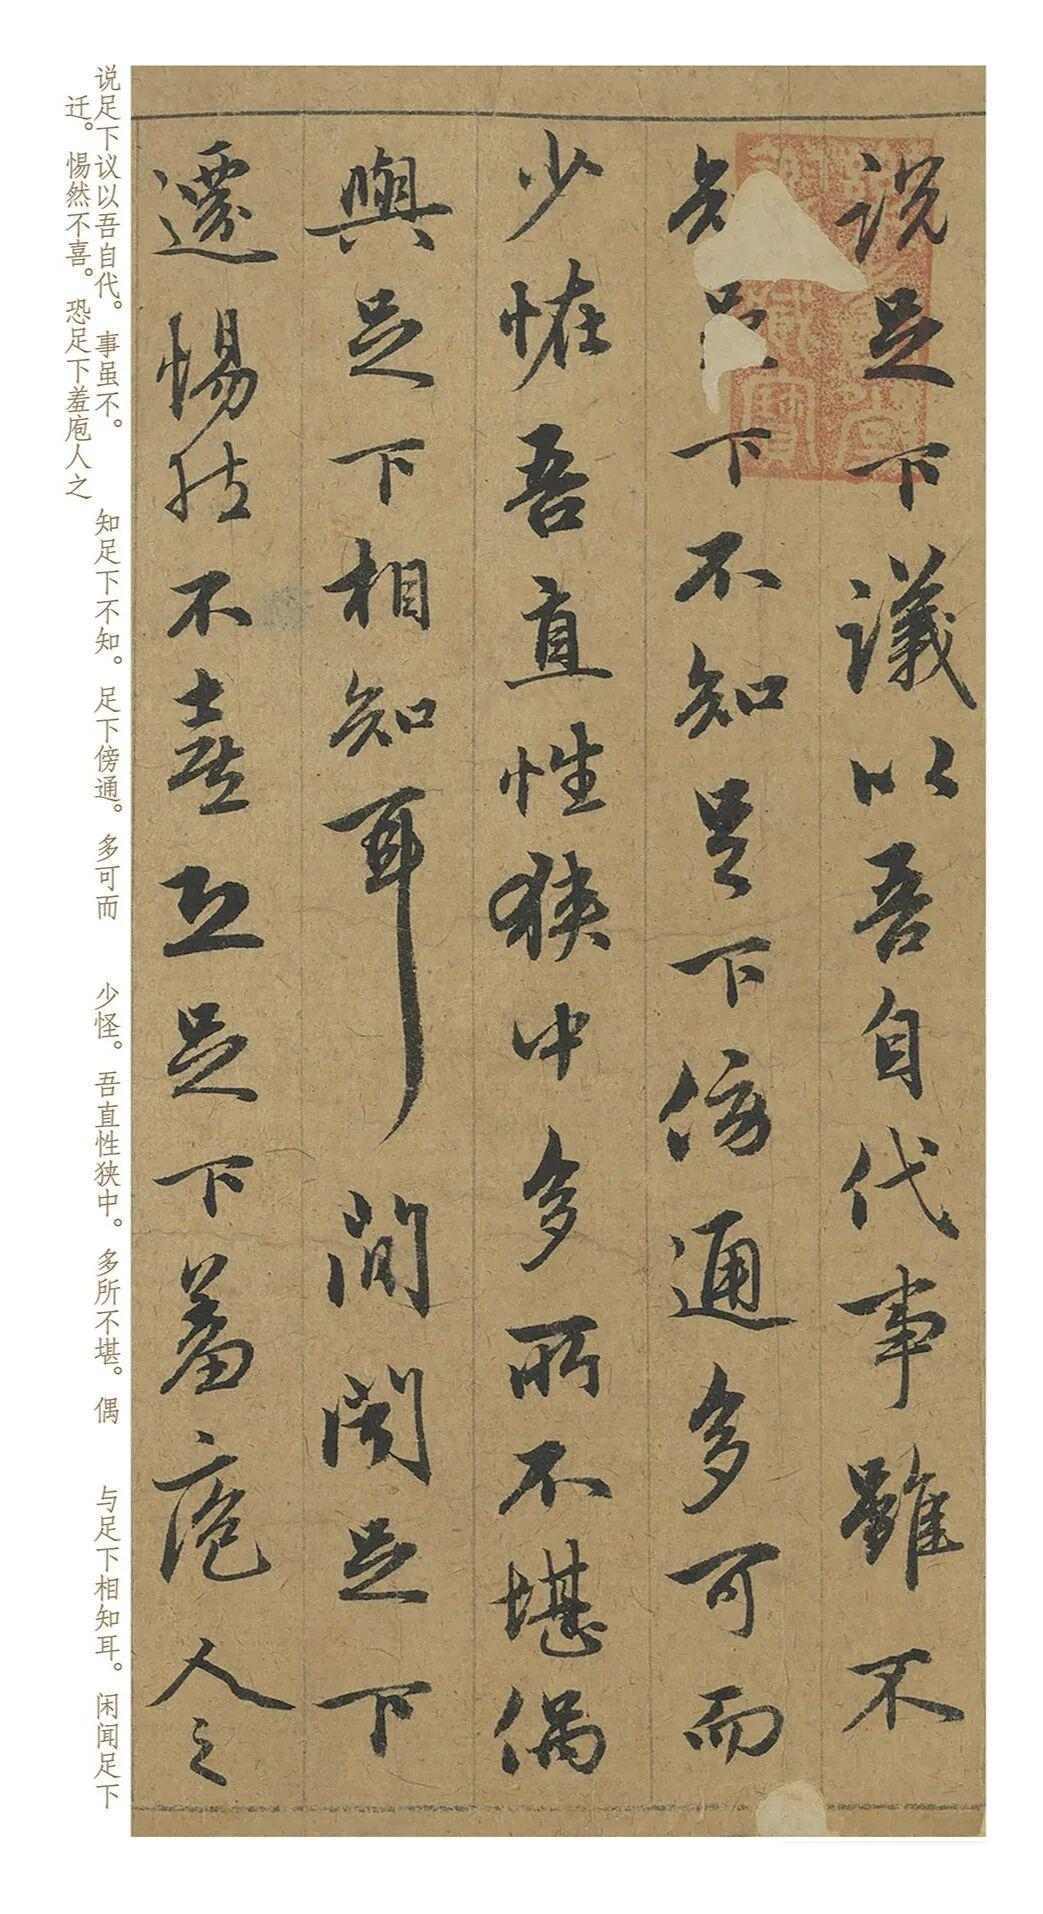 説足下議以吾自代事雖不
知足下不知足下傍通多可而
少恠吾直性狭中多所不堪偶
與足下相知耳間聞足下
遷惕然不喜恐足下羞庖人之
说足下议以吾自代。事虽不。 知足下不知。足下傍通。多可而 少怪。吾直性狭中。多所不堪。偶 与足下相知耳。闲闻足下
迁。惕然不喜。恐足下羞庖人之